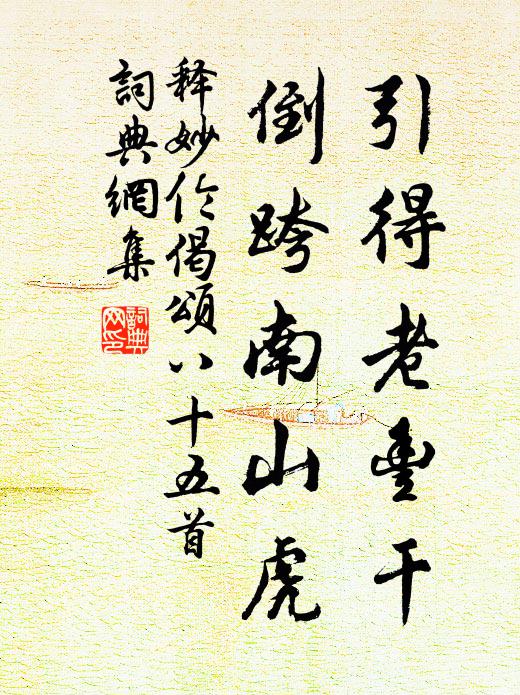 引得老豐干
倒跨南山虎
释妙伦偈頌八十五首
詞典網集
詞典网印